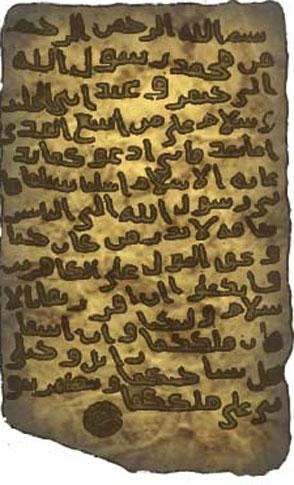 بسم الله الرحمن الرحيم
من محمد رسول الله
الى جيفر و عبد ابني الجلند
ى سلام على من اتبع الهدى
اما بعد فاني ادعوكما بد
عايه الاسلام اسلما تسلما فا
ني رسول الله الى الناس
كافه لانذر من كان حيا
و يحق القول على الكافرين
فانكما ان اقررتما بالا
سلام وليتكما وان ابيتما
فان ملككما زايل و خيلي
تحل بساحتكما و تظهر نبو
تي على ملككما